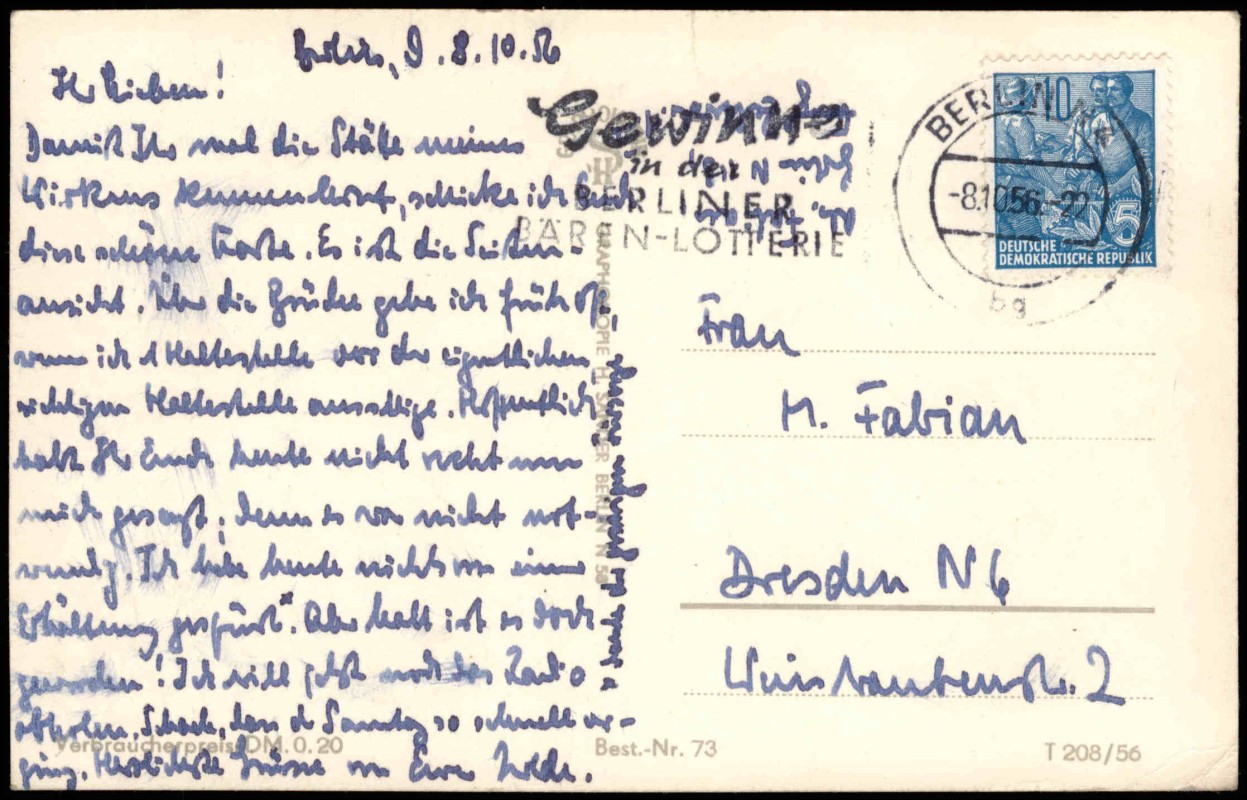 Berlin, d. 8.10.56
Ihr Lieben!
Damit Ihr mal die Stätte meines
Wirkens kennenlernt, schicke ich Euch
diese schöne Karte. Es ist die Seiten-
ansicht. Über die Brücke gehe ich früh oft,
wenn ich 1 Haltestelle vor der eigentlichen
richtigen Haltestelle aussteige. Hoffentlich
habt Ihr Euch heute nicht recht um
mich gesorgt, denn es war nicht not-
wendig. Ich habe heute nichts von einer
Erkältung gespürt*. Aber kalt ist es doch
geworden! Ich will jetzt noch das Radio
abholen. Schade, dass der Sonntag so schnell ver-
ging. Herzlichste Grüsse von Eurer
dank der
Gewinne
in der
BERLINER
BÄREN-LOTTERIE
BERLIN N 4
-8.10.56.-22
bg
10
5
DEUTSCHE
DEMOKRATISCHE REPUBLIK
Frau
M. Fabian
Dresden N 6
2
H. SANDER BERLIN N 58
Verbraucherpreis DM. 0.20
Best.-Nr. 73
T 208/56